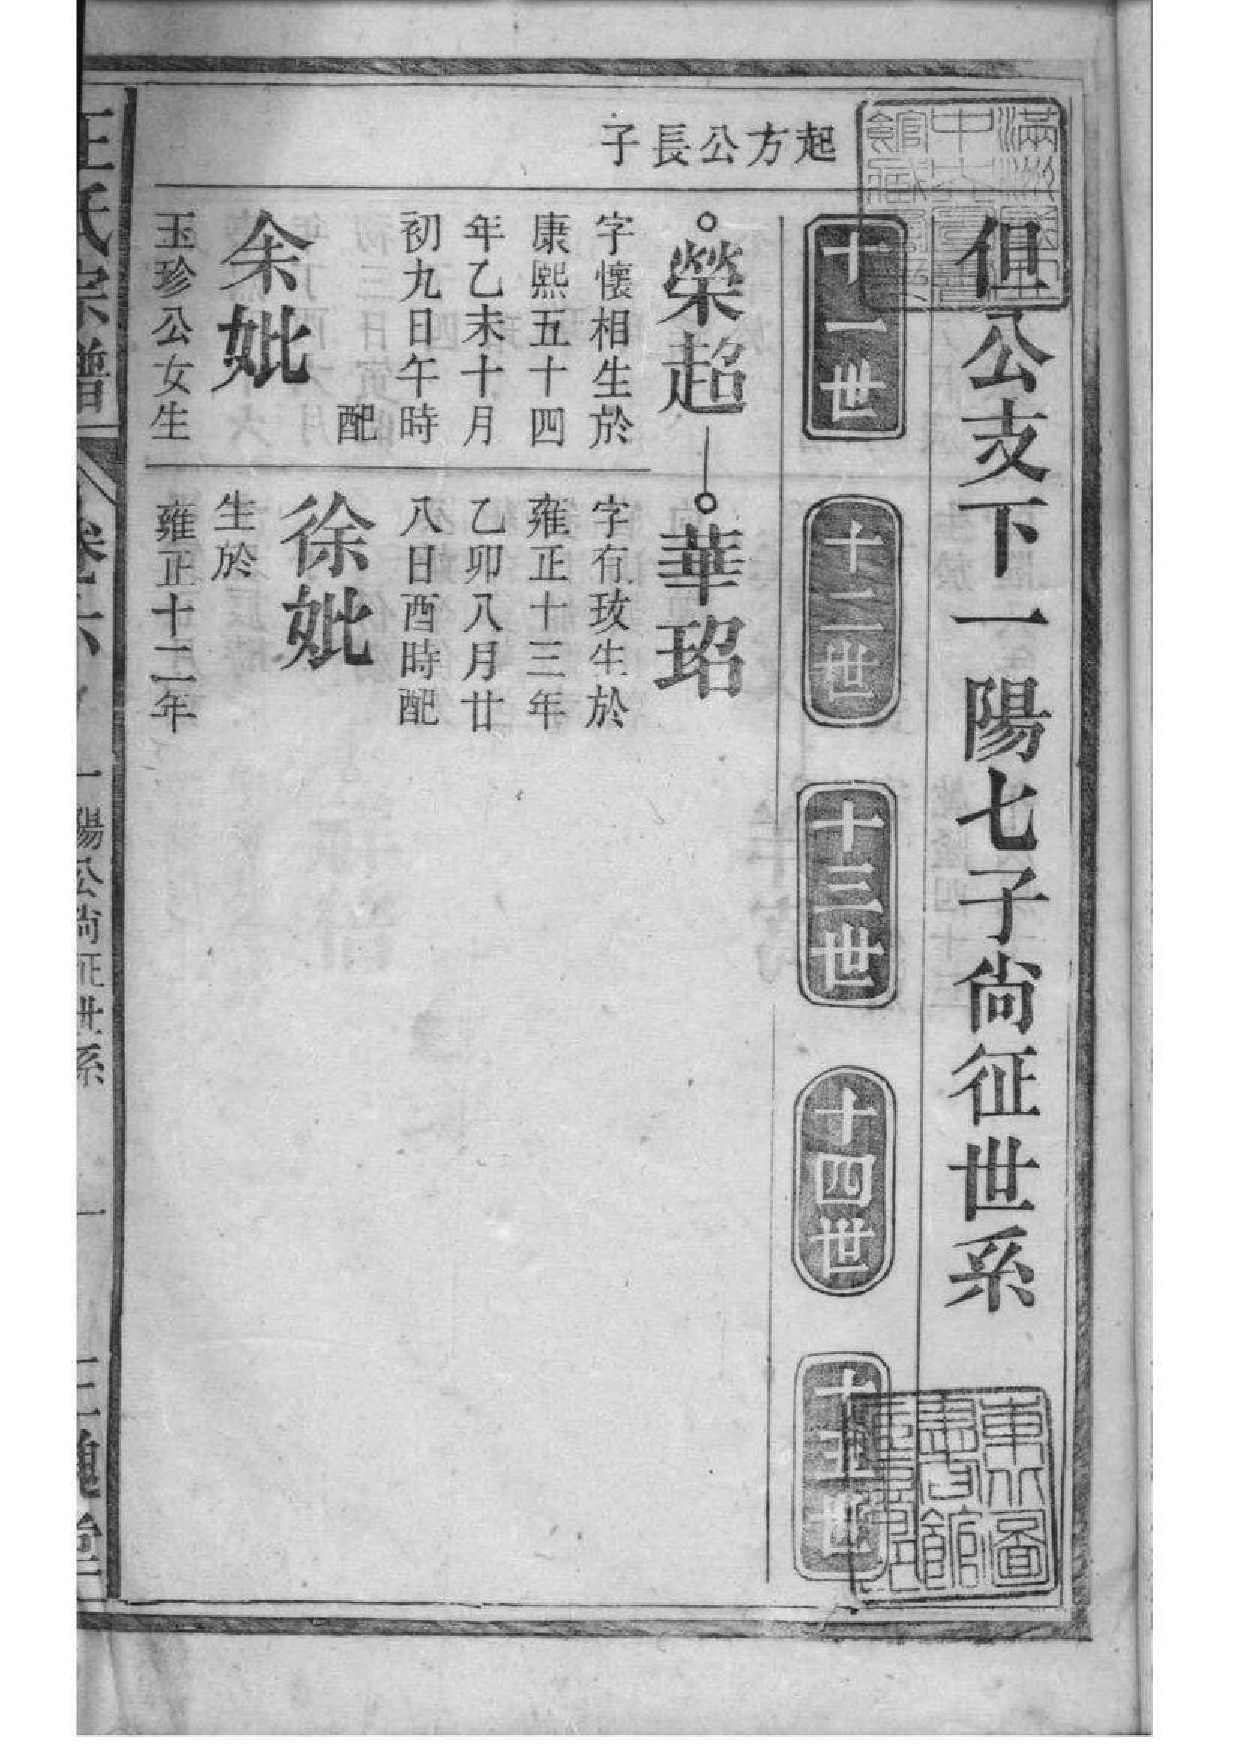 但公支下一陽七子尙征世系
十一世
十二世
十三世
十四世
十五世
起方公長子
榮超
字懷相生於
康熙五十四
年乙未十月
初九日午時
配
余妣
玉珍公女生
華玿
字有玫生於
雍正十三年
乙卯八月廿
八日酉時配
徐妣
生於
雍正十二年
王氏宗譜
卷六
一陽公尙征世系
一
三槐堂